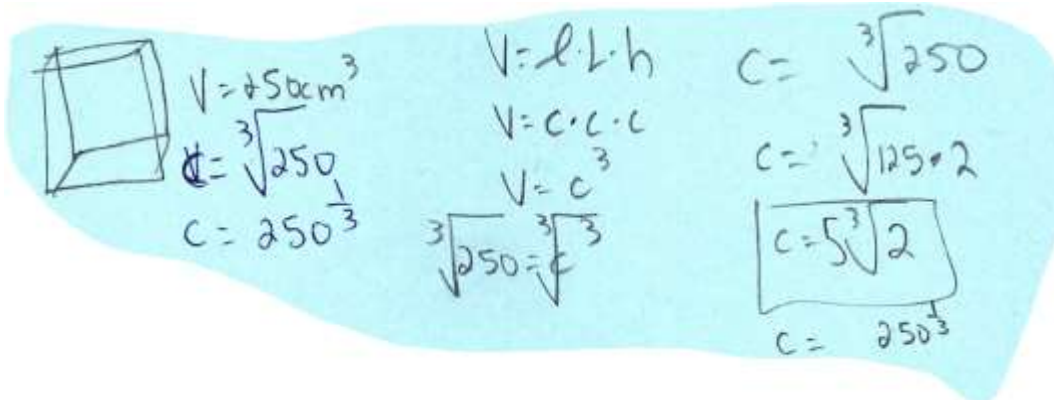 V=250cm³
c=∛250
c=250^(1/3)
V=l·L·h
V=c·c·c
V=c³
∛250=∛c³
c=∛250
c=∛125·2
c=5∛2
c=250^(1/3)